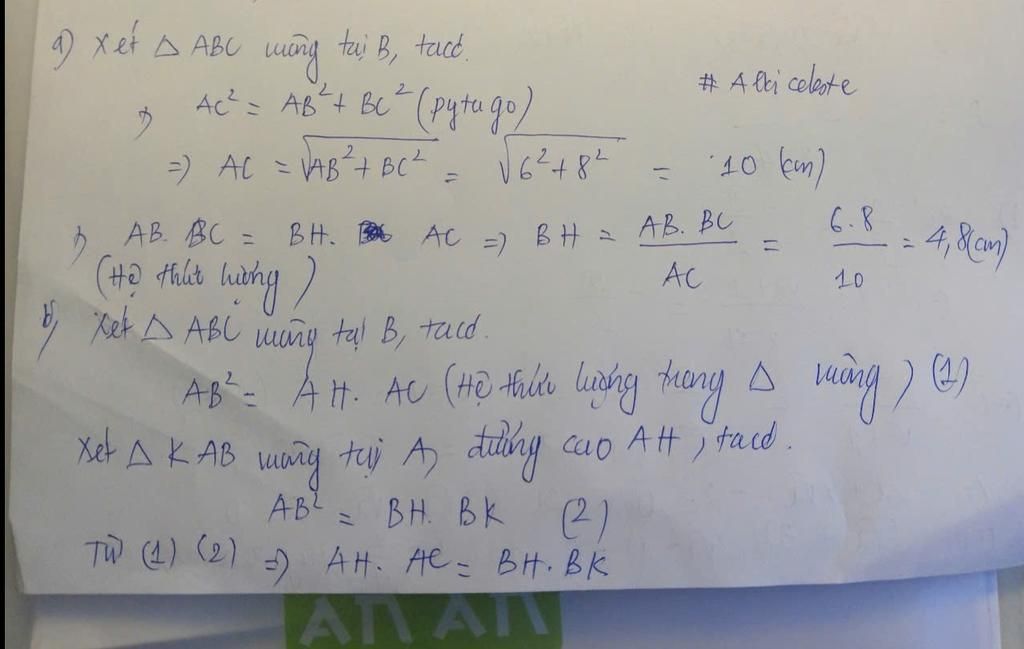 a) Xét △ ABC vuông tại B, tacó.
AC² = AB² + BC² (pytago)
# Alticeleste
=> AC = √AB² + BC² = √6² + 8² = 10 (cm)
AB. BC = BH. AC => BH = AB. BC / AC = 6.8 / 10 = 4,8(cm)
(Hệ thức lượng)
b) Xét △ ABC vuông tại B, tacó.
AB² = AH. AC (Hệ thức lượng trong △ vuông) (1)
Xét △ KAB vuông tại A, đường cao AH, tacó.
AB² = BH. BK (2)
Từ (1) (2) => AH. AC = BH. BK